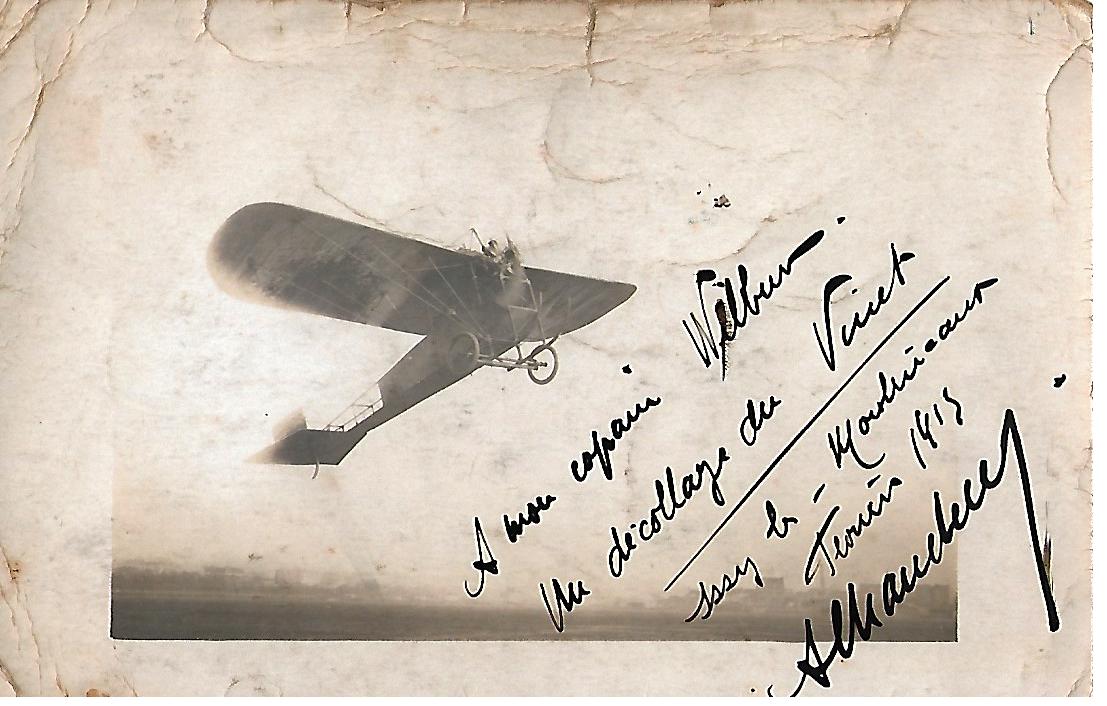 A mon copain Wilbur
Un décollage du Vinet
Issy les-Moulineaux
Février 1913